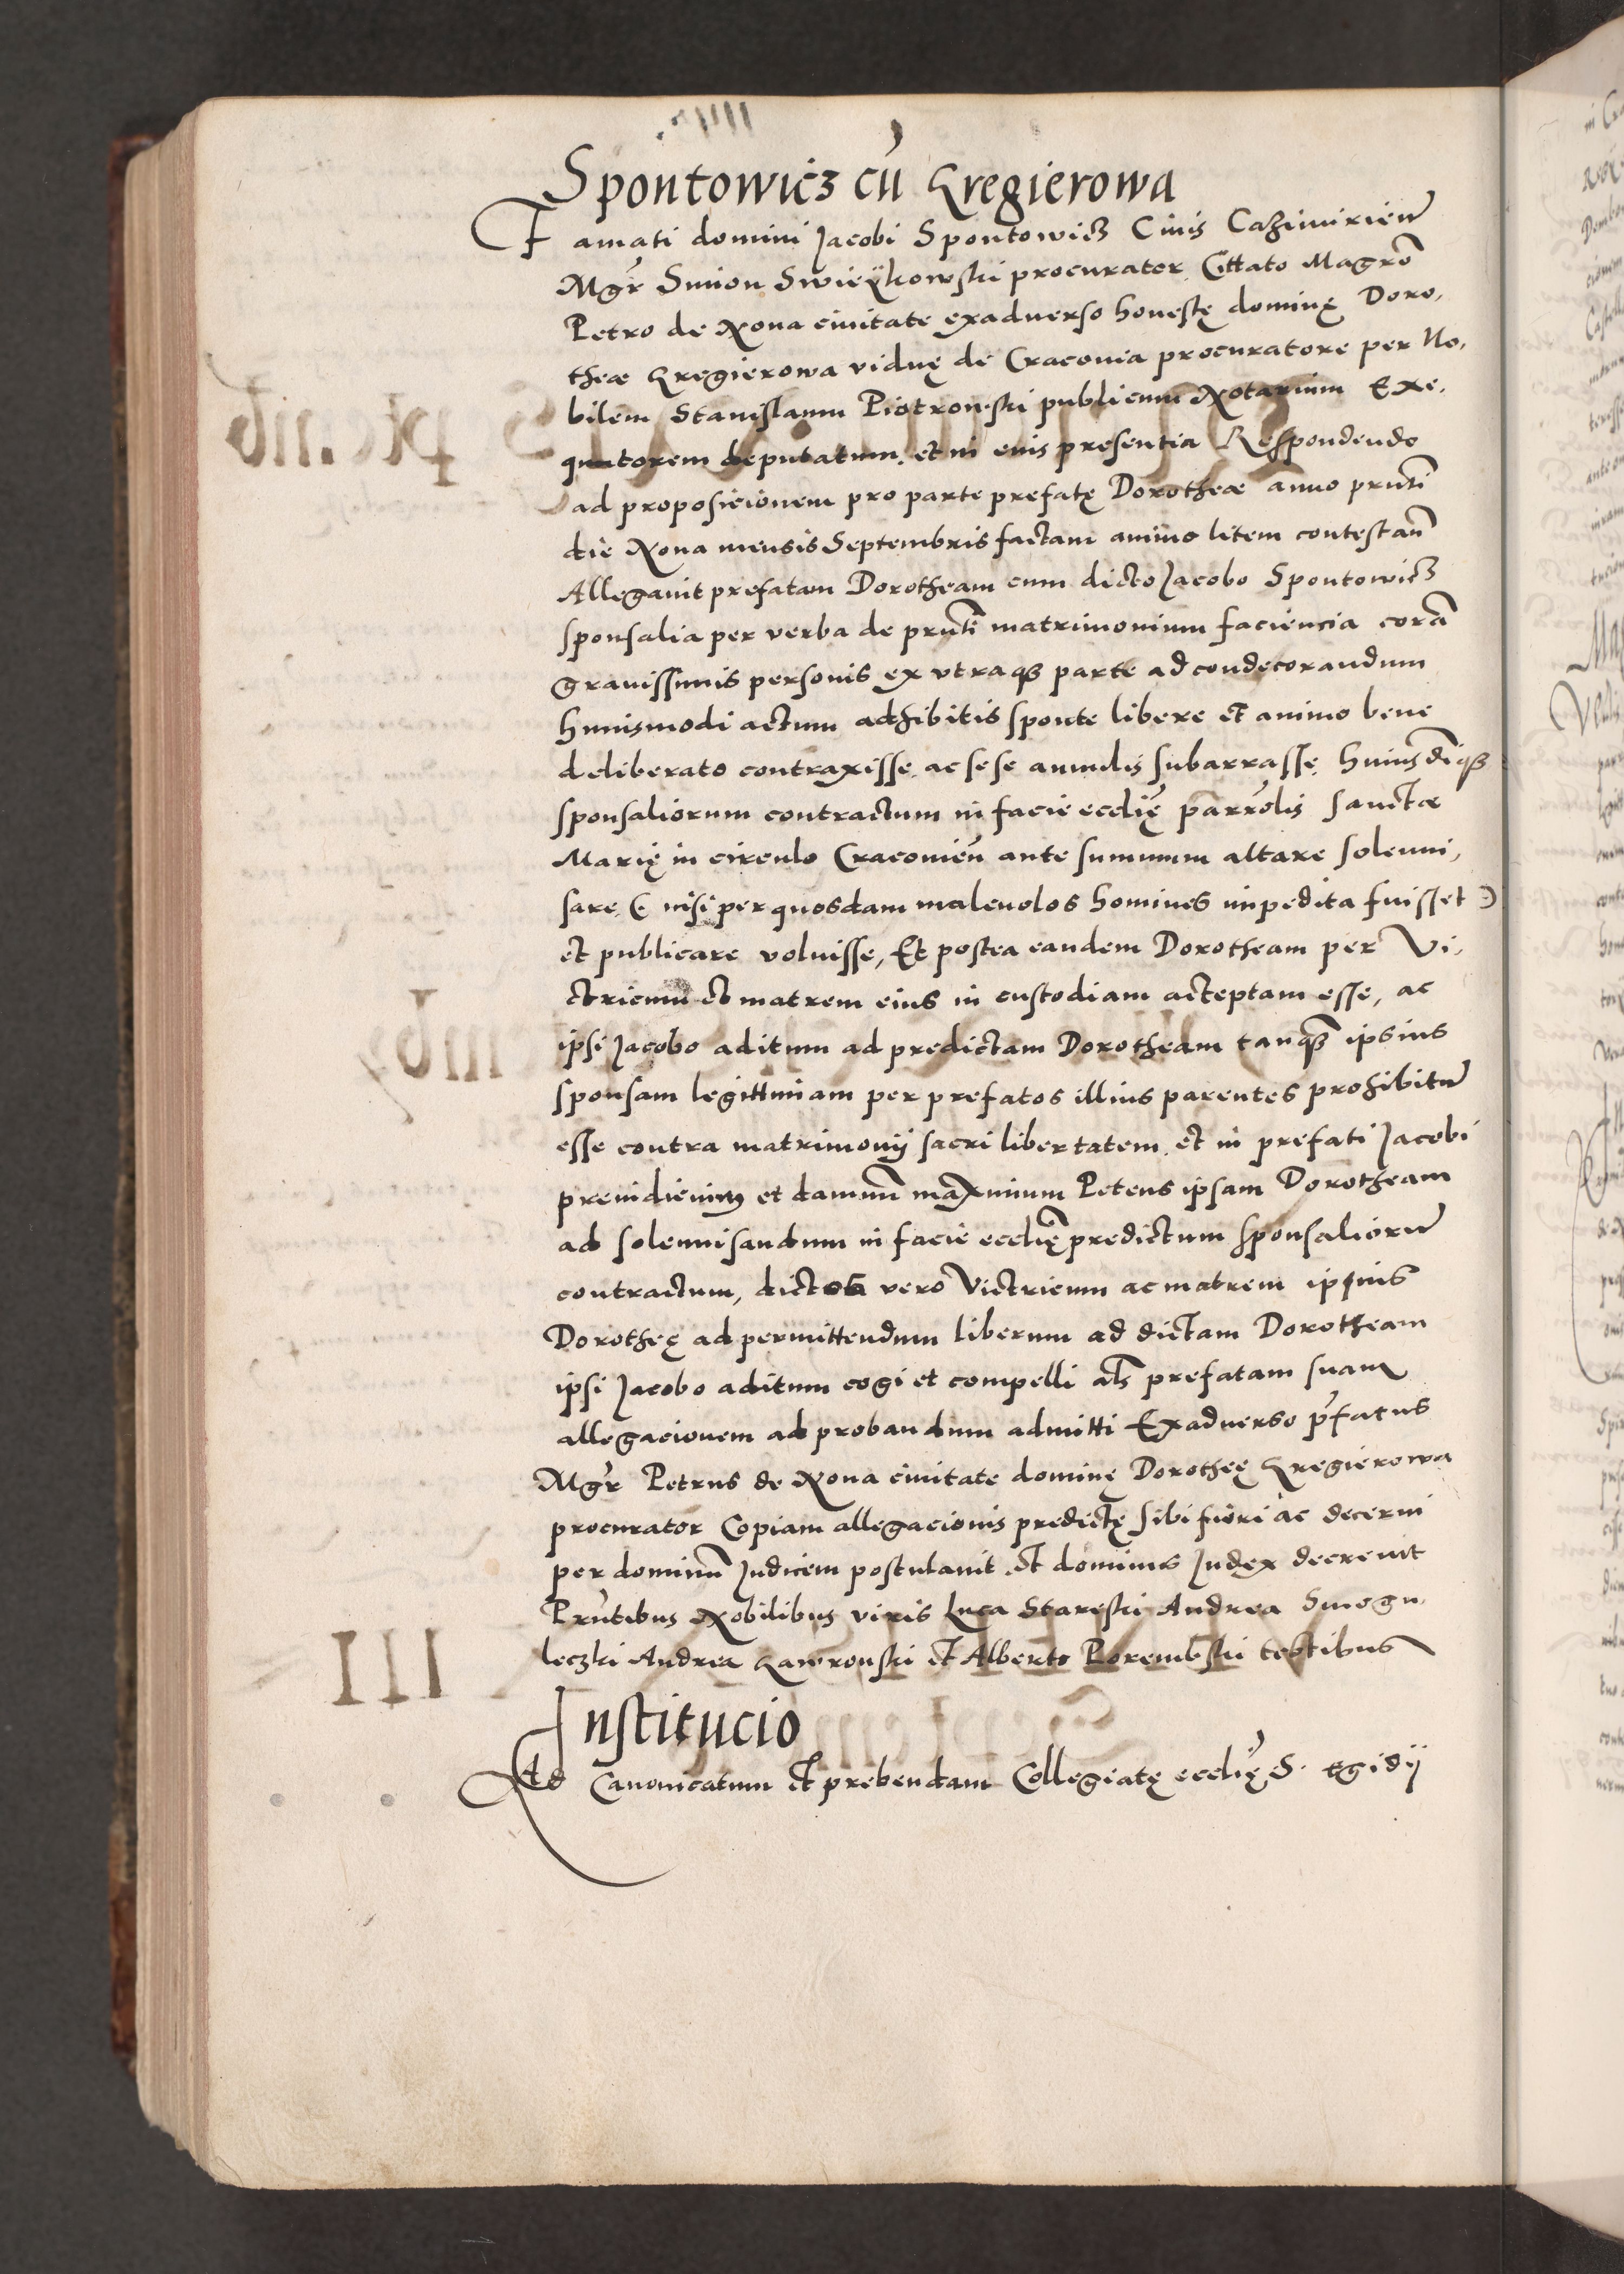 Spontowicz cũ Kregierowa
Famati domini Jacobi Spontowicz Ciuis Cazimirień
Mgr̃ Simon Swieÿkowski procurator. Cittato Magrõ
Petro de Noua ciuitate exaduerso honestę dominę Doro,
theæ Kregierowa viduę de Cracouia procuratore per No,
bilem Stanislaum Piotrowski publicum Notarium Exe,
quutorem deputatum. et in eius presentia Respondendo
ad proposicionem pro parte prefatę Dorotheæ anno pr̃nti
die Nona mensis Septembris factam animo litem contestañ
Allegauit prefatam Dorotheam cum dicto Jacobo Spontowicz
sponsalia per verba de pr̃nti matrimonium faciencia corã
grauissimis personis ex vtraqȝ parte ad condecorandum
huiusmodi actum adhibitis sponte libere et animo bene
deliberato contraxisse, ac sese annulis subarrasse, huiusmõiqȝ
sponsaliorum contractum in facie eccl̃ię parr̃olis Sanctæ
Marię in circulo Cracouień ante summum altare solenni,
sare, ( nisi per quosdam maleuolos homines impedita fuisset )
et publicare voluisse, Et postea eandem Dorotheam per Vi,
ctricum et matrem eius in custodiam acceptam esse, ac
ipsi Jacobo aditum ad predictam Dorotheam tanqȝ ipsius
sponsam legittimam per prefatos illius parentes prohibitũ
esse contra matrimonij sacri libertatem, et in prefati Jacobi
preiudicium et damnũ maximum Petens ipsam Dorotheam
ad solennisandum in facie eccl̃ię predictum sponsaliorũ
contractum, dictos vero Victricum ac matrem ipsius
Dorotheę ad permittendum liberum ad dictam Dorotheam
ipsi Jacobo aditum cogi et compelli al̃s prefatam suam
allegacionem ad probandum admitti Exaduerso p̃fatus
Mgr̃ Petrus de Noua ciuitate dominę Dorotheę Kregierowa
procurator Copiam allegacionis predictę sibi fieri ac decerni
per dominũ Judicem postulauit. et dominus Judex decreuit
Pr̃ntibus Nobilibus viris Luca Stareski Andrea Smogu,
leczki Andrea Gawronski et Alberto Porembski testibus
Institucio
Ad Canonicatum et prebendam Collegiatę eccl̃ię S. Egidij